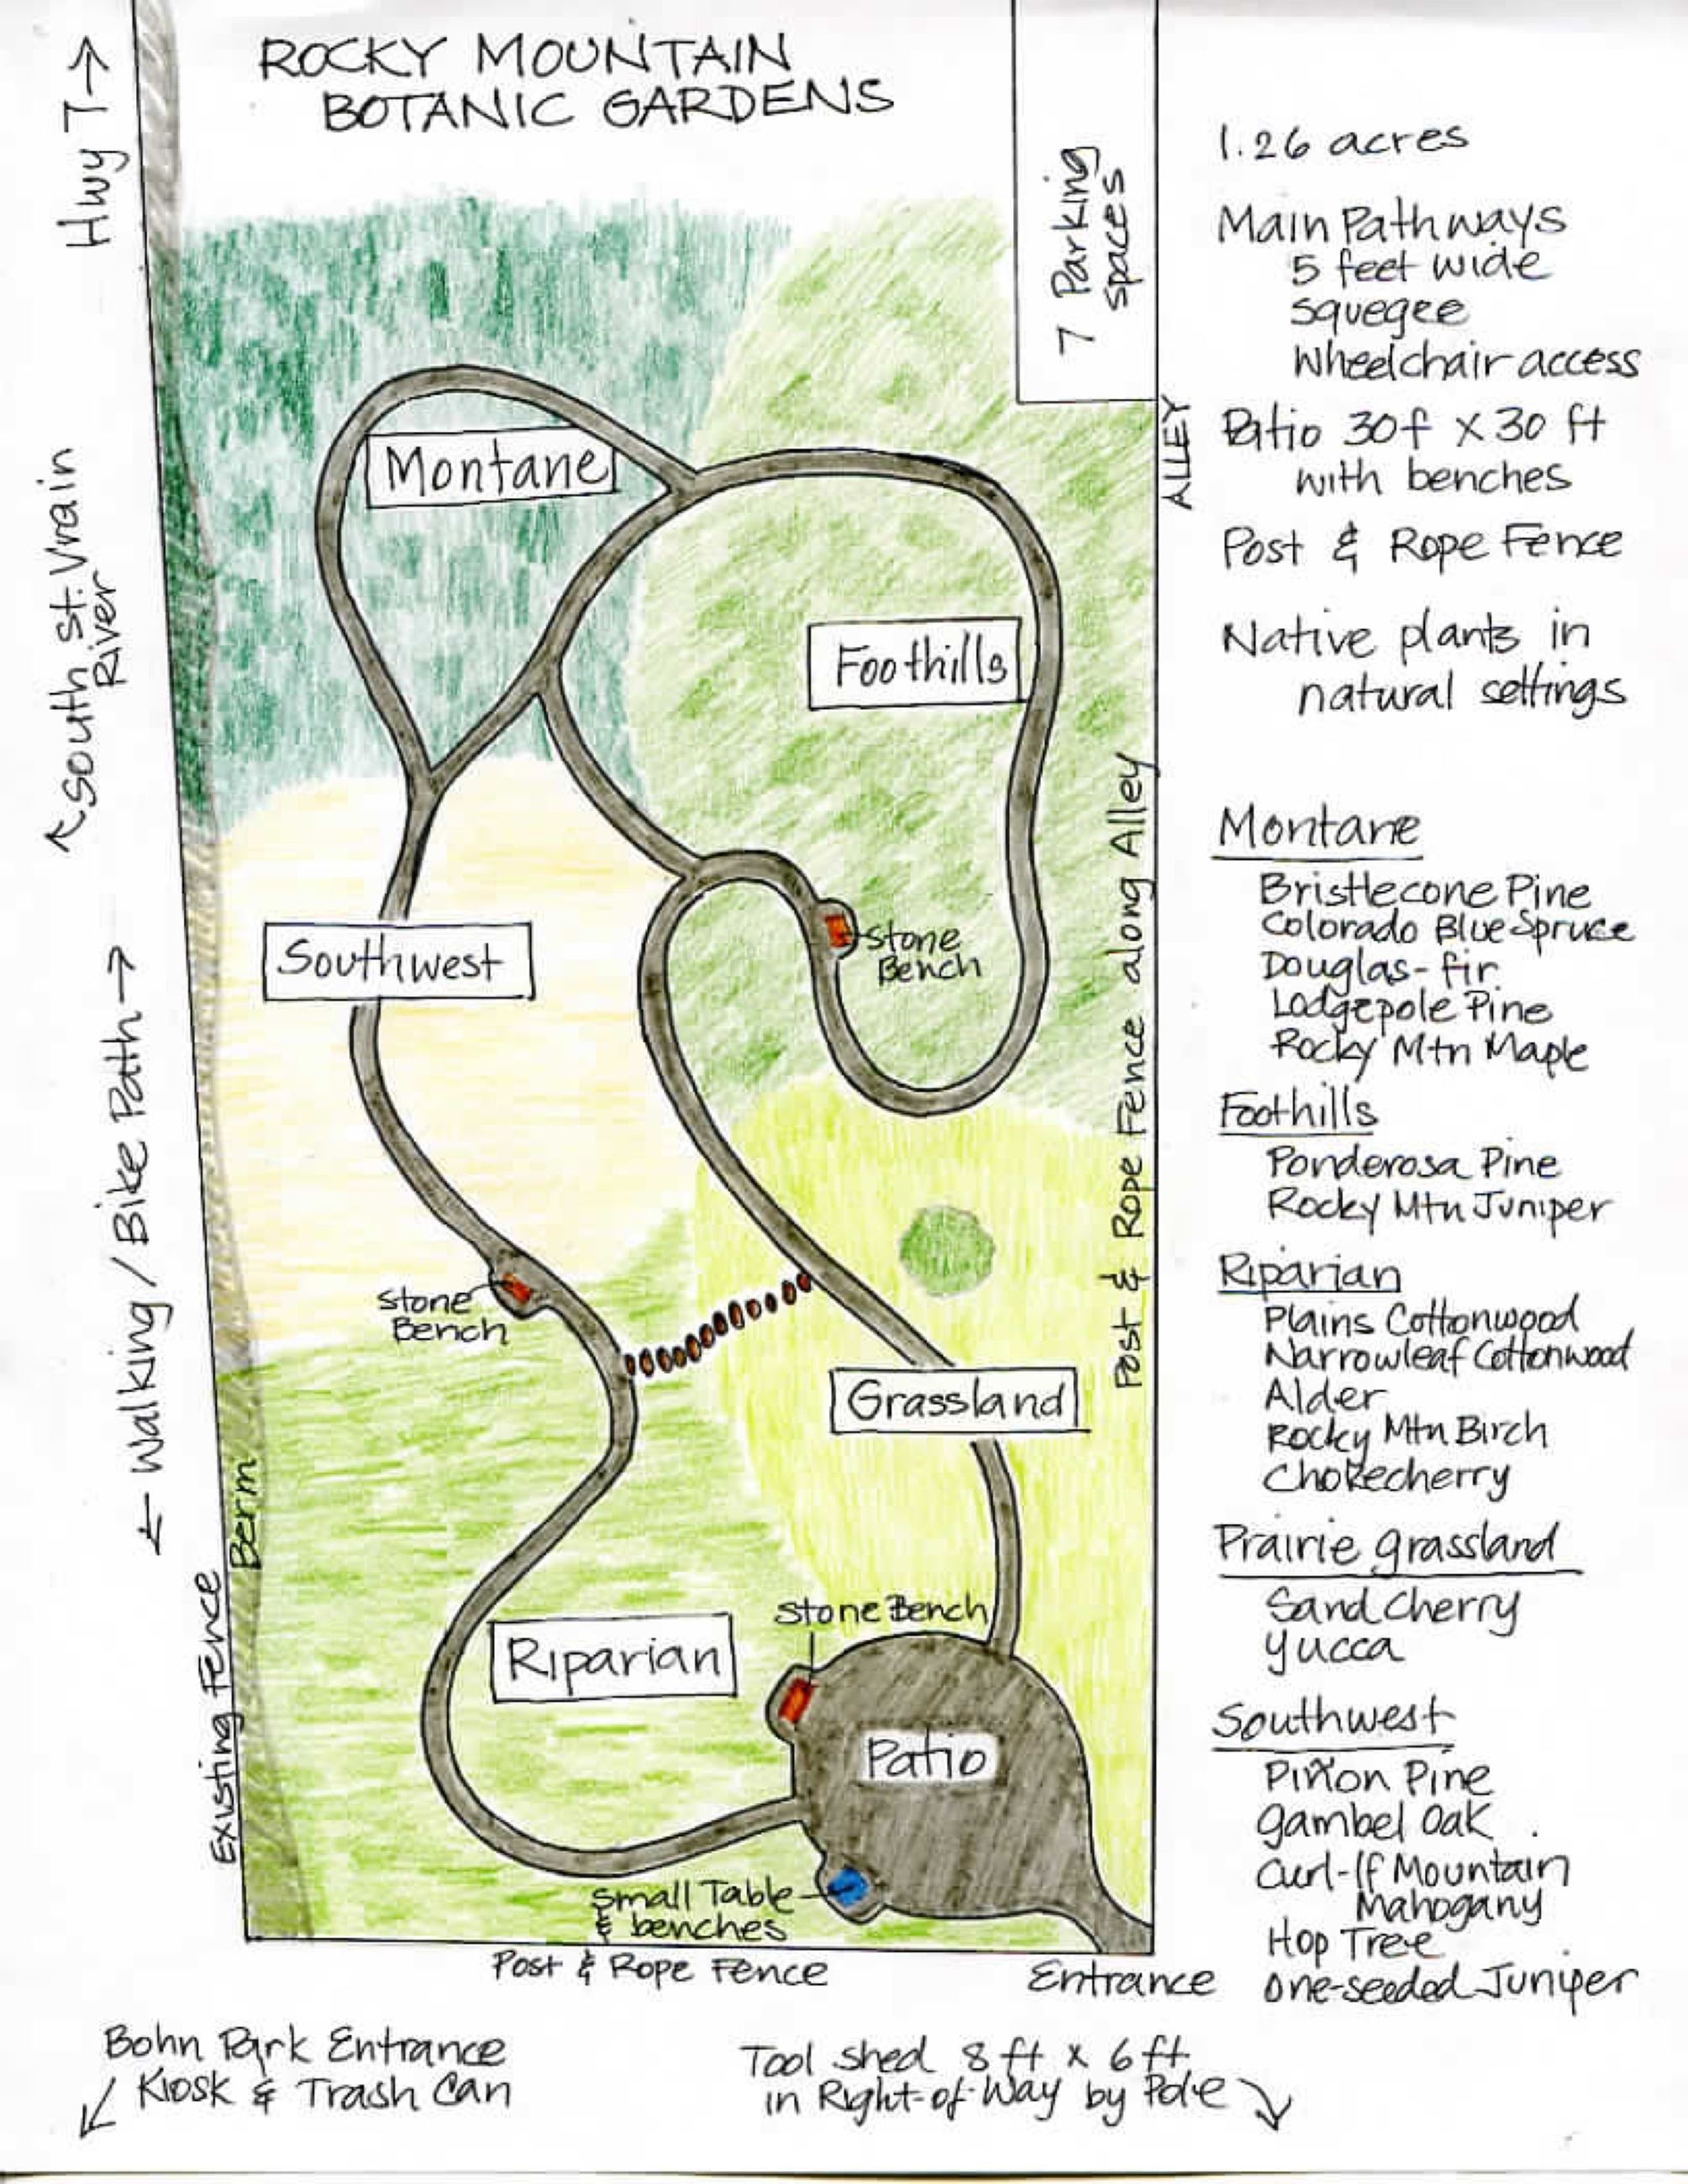 ROCKY MOUNTAIN
BOTANIC GARDENS
Hwy 7 →
7 Parking
spaces
1.26 acres
Main Pathways
5 feet wide
squegee
wheelchair access
ALLEY
Patio 30f x 30 ft
with benches
Post & Rope Fence
Native plants in
natural settings
Montane
Foothills
← South St. Vrain
River
Southwest
Stone
Bench
Post & Rope Fence along Alley
← Walking / Bike Path →
Stone
Bench
Grassland
Berm
Existing Fence
Riparian
Stone Bench
Patio
Small Table
& benches
Post & Rope Fence
Entrance
Montane
Bristlecone Pine
Colorado Blue Spruce
Douglas-fir
Lodgepole Pine
Rocky Mtn Maple
Foothills
Ponderosa Pine
Rocky Mtn Juniper
Riparian
Plains Cottonwood
Narrowleaf Cottonwood
Alder
Rocky Mtn Birch
Chokecherry
Prairie grassland
Sand Cherry
Yucca
Southwest
Piñon Pine
Gambel Oak
Curl-lf Mountain
Mahogany
Hop Tree
One-seeded Juniper
Bohn Park Entrance
Kiosk & Trash Can
Tool shed 8 ft x 6 ft
in Right-of-Way by Pole